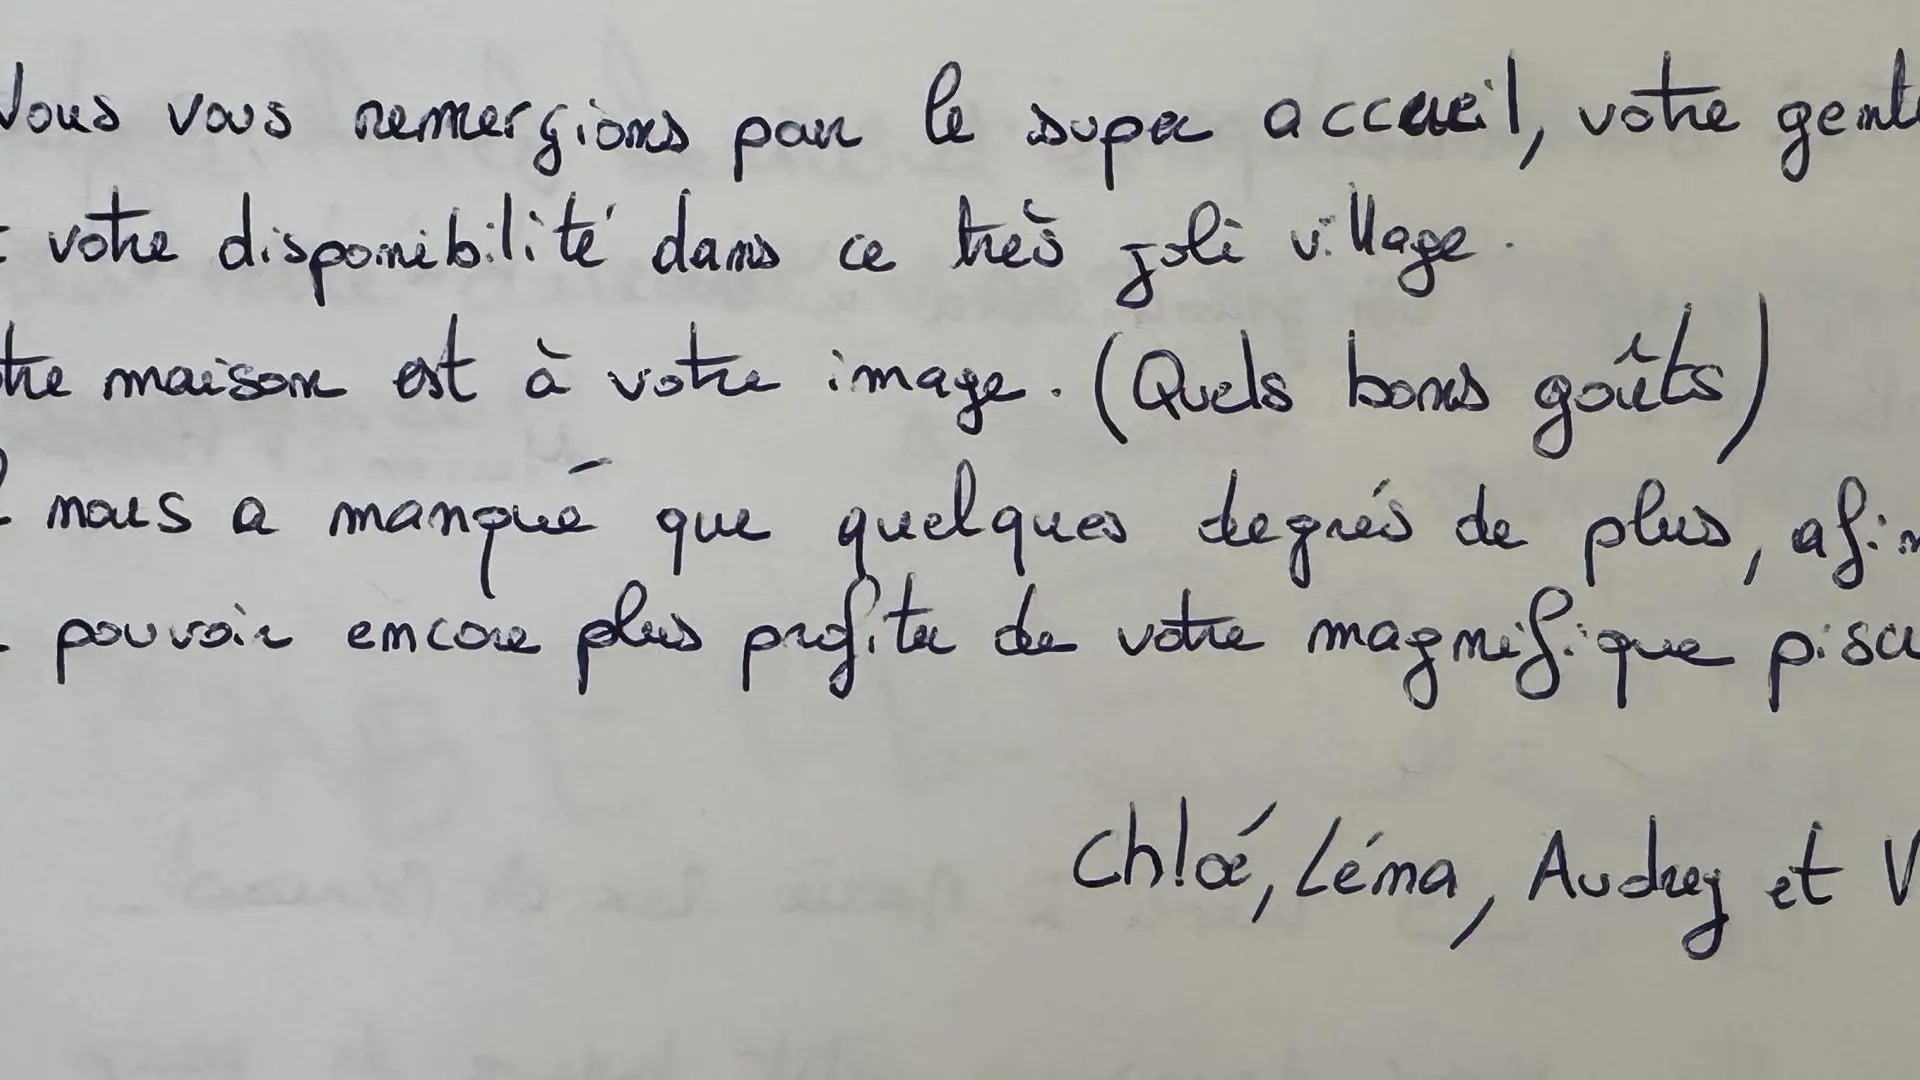 Nous vous remergions pour le super accueil, votre genti
t votre disponibilité dans ce très joli village.
tre maison est à votre image. (Quels bons goûts)
l nous a manqué que quelques degrés de plus, afin
pouvoir encore plus profiter de votre magnifique pisci
Chloé, Léna, Audrey et V